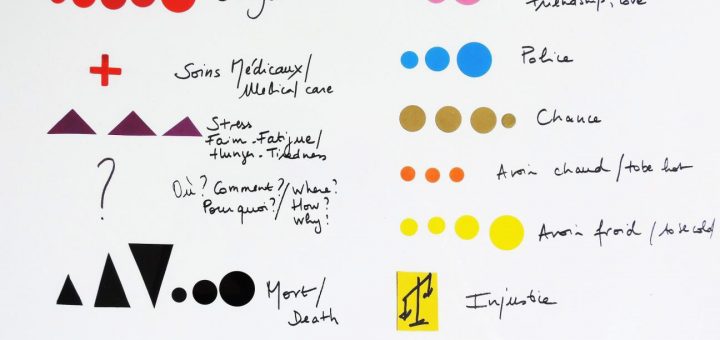 Soins Médicaux/
Medical care
Stress
Faim - Fatigue/
Hunger - Tiredness
?
Où? Comment?/Where?
Pourquoi?/How?
Why?
Mort/
Death
friendship, love
Police
Chance
Avoir chaud/to be hot
Avoir froid/to be cold/
Injustice